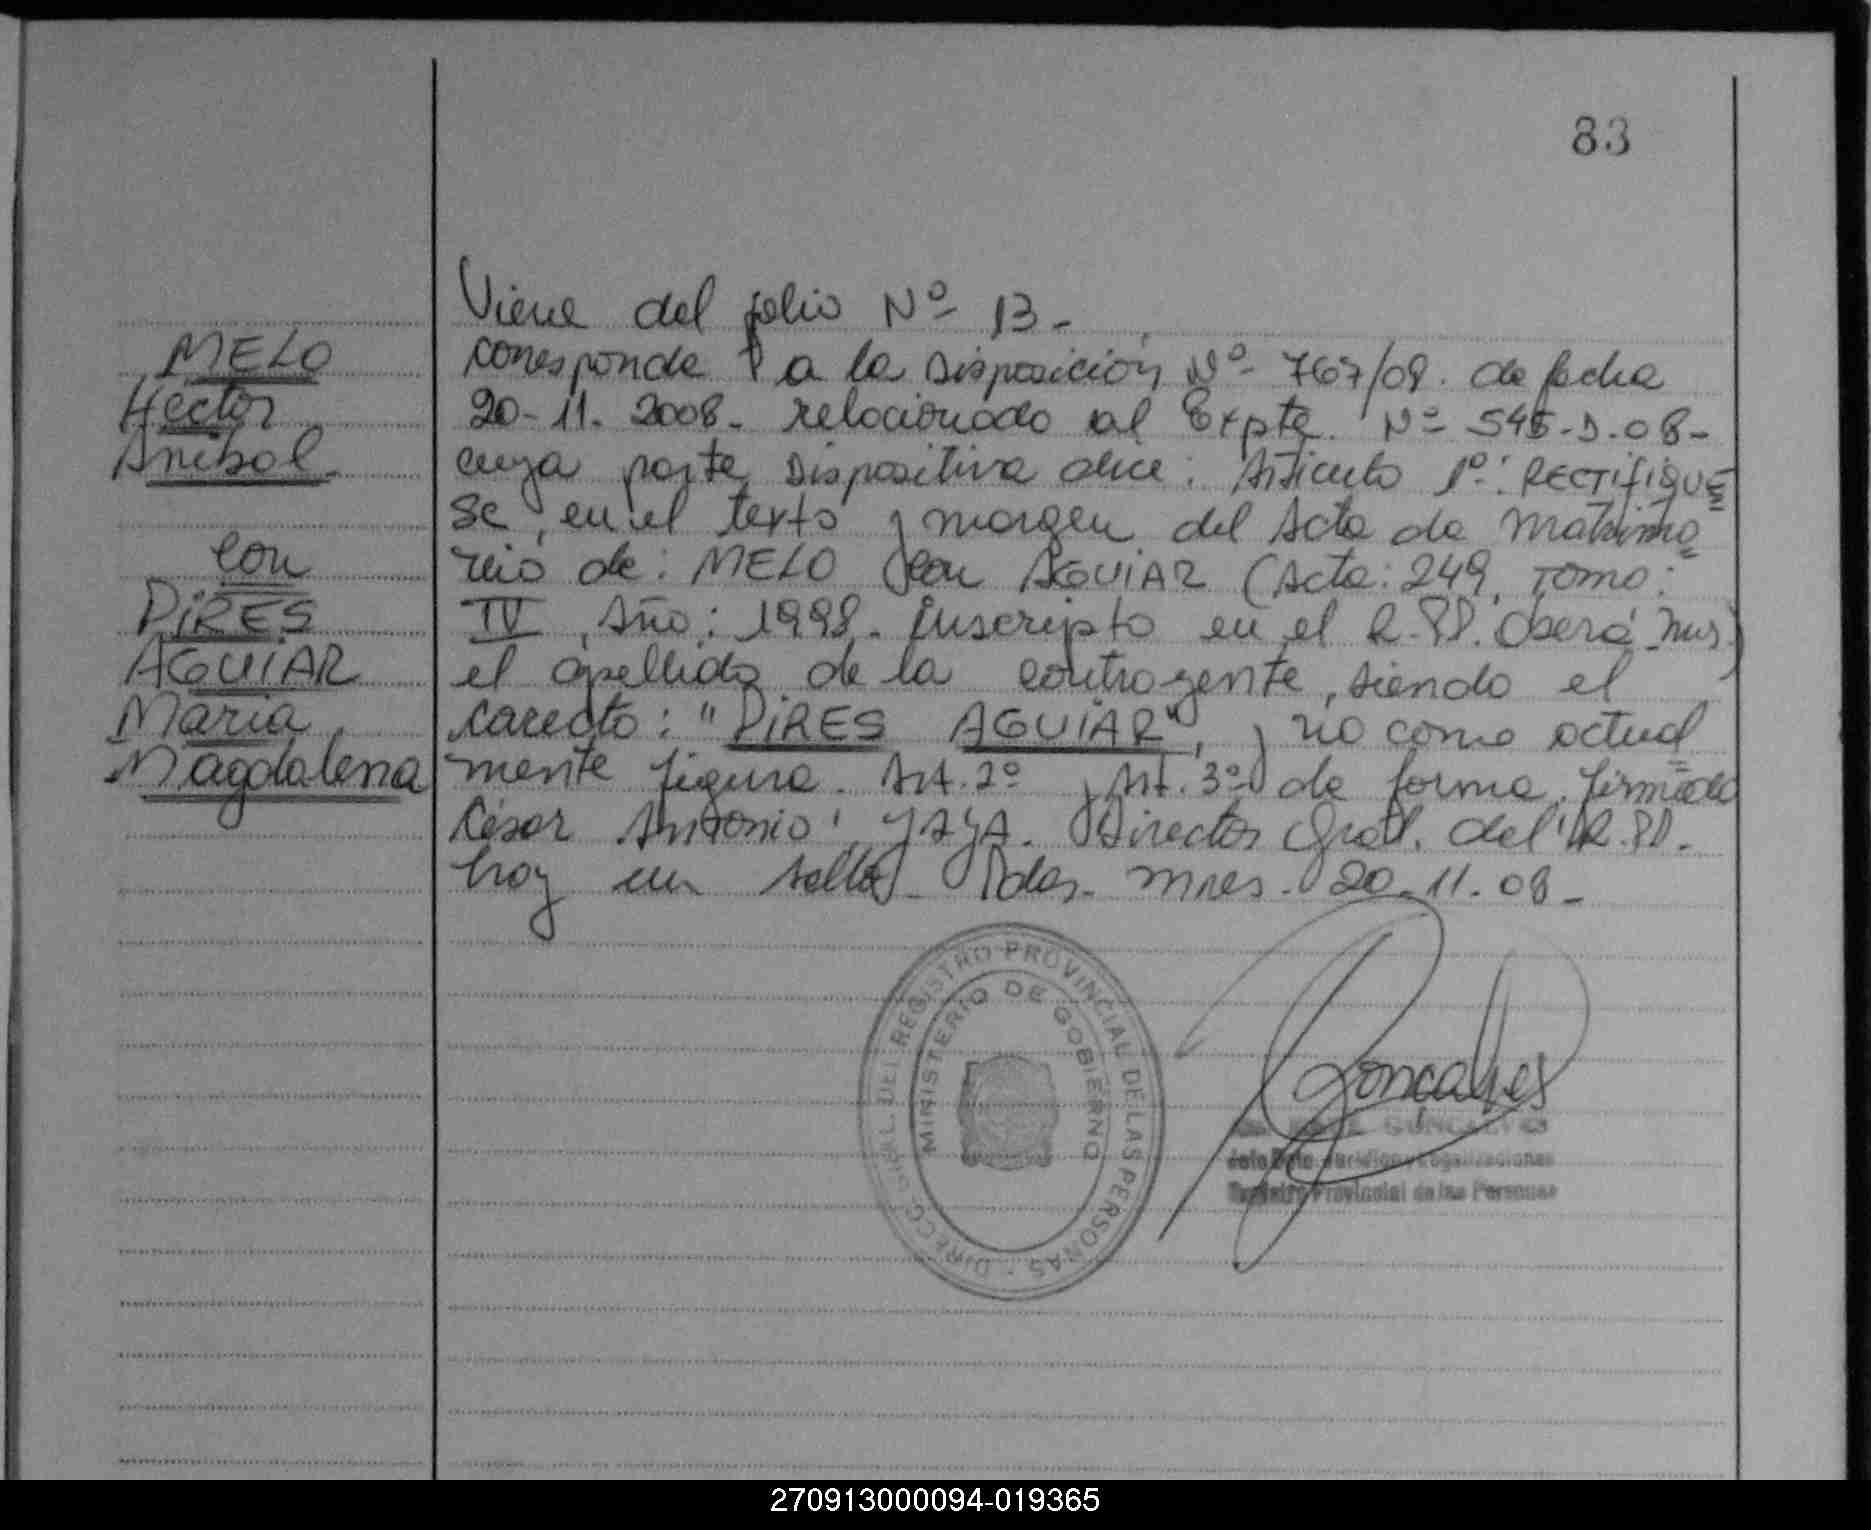 83
Viene del folio Nº 13-
MELO
Hector
Anibal.
con
PiRES
AGUiAR
Maria
Magdalena
corresponde a la Disposición Nº 767/08. de fecha
20-11-2008- relacionado al Expte. Nº 545-D-08-
cuya parte Dispositiva dice: Articulo 1º: RECTIFIQUE=
se, en el texto y margen del Acta de Matrimo=
nio de: MELO con AGUiAR (Acta: 249, Tomo:
IV, Año: 1998. Inscripto en el R.PP. Oberá Mnes)
el apellido de la contrayente, siendo el
correcto: "PiRES AGUiAR", y no como actual=
mente figura. Art. 2º y Art. 3º de forma. firmado
César Antonio YAYA. Director Gral. del R.PP.
hoy un sello. Pdas. Mnes. 20-11-08-
DIRECC. GRAL. DEL REGISTRO PROVINCIAL DE LAS PERSONAS
MINISTERIO DE GOBIERNO
Goncalves
GONCALVES
Jefe Dpto. Jurídico y Legalizaciones
Registro Provincial de las Personas
270913000094-019365